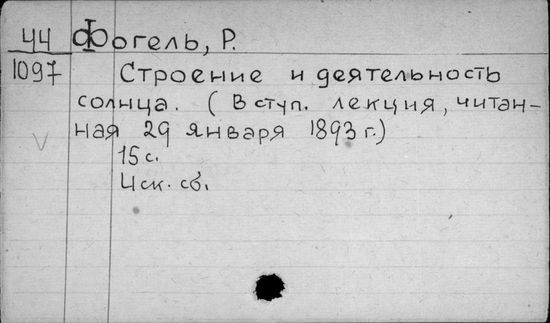 44 Фогель, Р.
1097 Строение и деятельность
солнца. (Вступ. лекция, читан-
ная 29 января 1893 г.)
15 с.
Иск. сб.